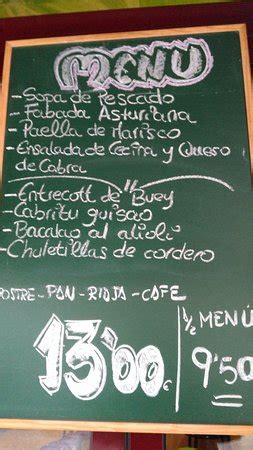 MENU
- Sopa de Pescado
- Fabada Asturiana
- Paella de Marisco
- Ensalada de Cecina y Queso
de Cabra
"
- Entrecott de Buey
- Cabritu guisao
- Bacalao al alioli
- Chuletillas de cordero
POSTRE - PAN - RIOJA - CAFE
13'00€
1/2 MENÚ
9'50